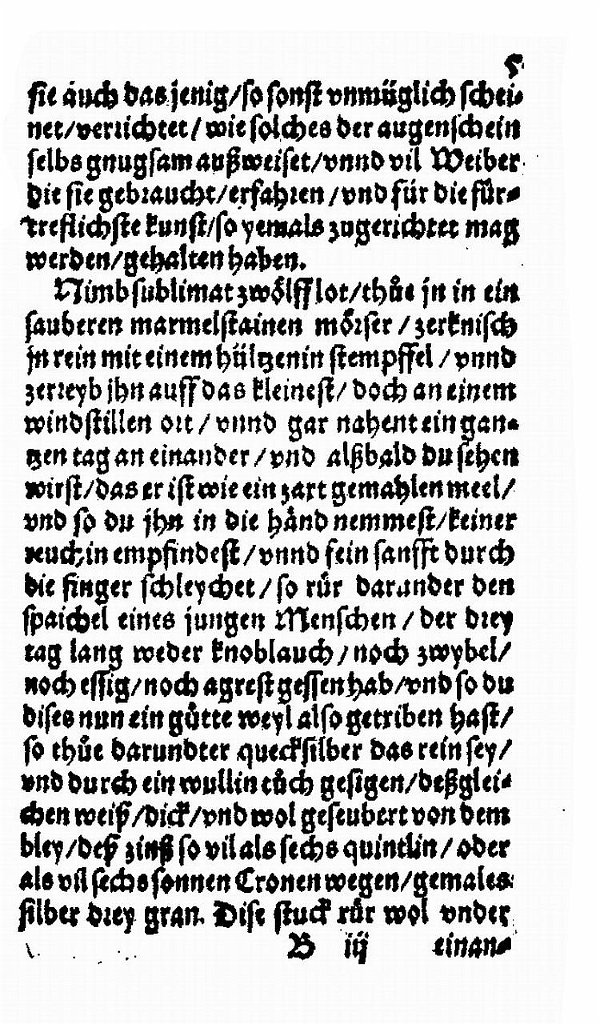 5
sie auch das jenig/so sonst vnmüglich schei-
net/verrichtet/wie solches der augenschein
selbs gnugsam außweiset/vnnd vil Weiber
die sie gebraucht/erfahren/vnd für die für-
treflichste kunst/so yemals zugerichtet mag
werden/gehalten haben.
Nimb sublimat zwölff lot/thůe jn in ein
sauberen marmelstainen mörser/zerknisch
jn rein mit einem hültzenin stempffel/vnnd
zerreyb jhn auff das kleinest/doch an einem
windstillen ort/vnnd gar nahent ein gan-
tzen tag an einander/vnd alßbald du sehen
wirst/das er ist wie ein zart gemahlen meel/
vnd so du jhn in die händ nemmest/keiner
reuchin empfindest/vnnd sein sanfft durch
die finger schleychet/so rür darunder den
spaichel eines jungen Menschen/der drey
tag lang weder knoblauch/noch zwybel/
noch essig/noch agrest gessen hab/vnd so du
dises nun ein gůtte weyl also getriben hast/
so thůe darundter quecksilber das rein sey/
vnd durch ein wullin tůch gesigen/deßglei-
chen weiß/dick/vnd wol geseubert von dem
bley/deß zinß so vil als sechs quintlin/oder
als vil sechs sonnen Cronen wegen/gemales
silber drey gran. Dise stuck rür wol vnder
B iij einan-